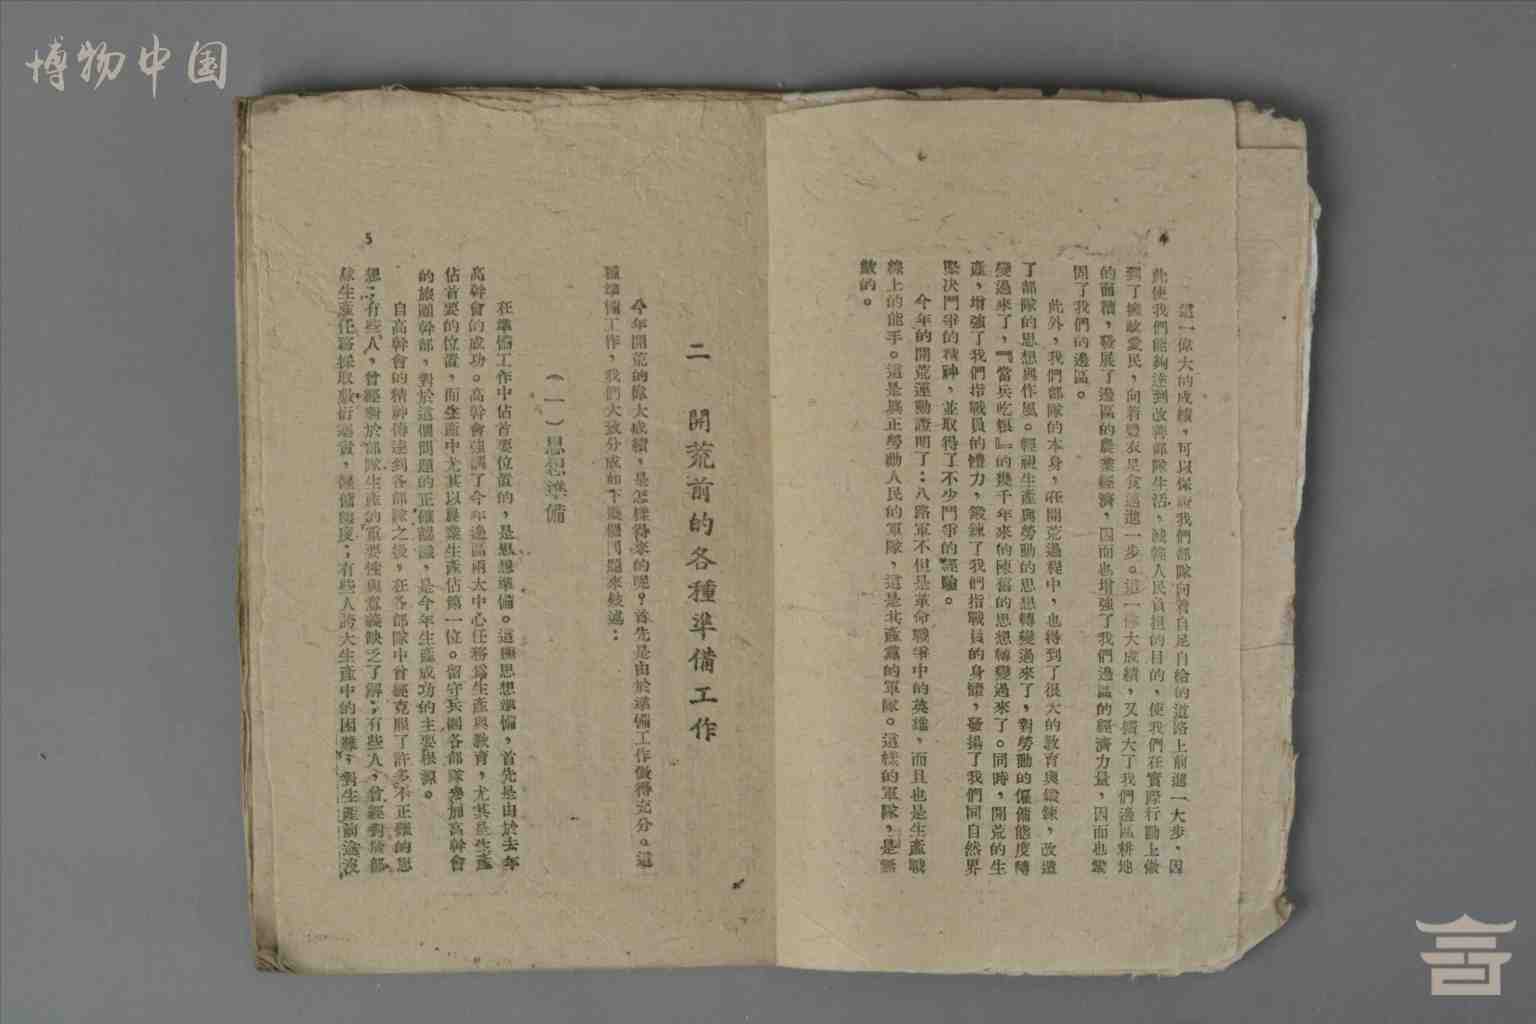 博物中国
4
這一偉大的成績，可以保證我們部隊向着自足自給的道路上前進一大步，因
此使我們能夠達到改善部隊生活，減輕人民負担的目的，使我們在實際行動上做
到了擁政愛民，向着豐衣足食邁進一步。這一偉大成績，又擴大了我們邊區耕地
的面積，發展了邊區的農業經濟，因而也增強了我們邊區的經濟力量，因而也鞏
固了我們的邊區。
此外，我們部隊的本身，在開荒過程中，也得到了很大的教育與鍛鍊，改造
了部隊的思想與作風。輕視生產與勞動的思想轉變過來了，對勞動的僱傭態度轉
變過來了，『當兵吃糧』的幾千年來的陳舊的思想轉變過來了。同時，開荒的生
產，增強了我們指戰員的體力，鍛鍊了我們指戰員的身體，發揚了我們同自然界
堅决鬥爭的精神，並取得了不少鬥爭的經驗。
今年的開荒運動證明了：八路軍不但是革命戰爭中的英雄，而且也是生產戰
線上的能手。這是真正勞動人民的軍隊，這是共產黨的軍隊。這樣的軍隊，是無
敵的。
二　開荒前的各種準備工作
今年開荒的偉大成績，是怎樣得來的呢？首先是由於準備工作做得充分。這
種準備工作，我們大致分成如下幾個問題來敍述：
（一）思想準備
在準備工作中佔首要位置的，是思想準備。這種思想準備，首先是由於去年
高幹會的成功。高幹會強調了今年邊區兩大中心任務為生產與教育，尤其是生產
佔首要的位置，而生產中尤其以農業生產佔第一位。留守兵團各部隊參加高幹會
的旅團幹部，對於這個問題的正確認識，是今年生產成功的主要根源。
自高幹會的精神傳達到各部隊之後，在各部隊中曾經克服了許多不正確的思
想：有些人，曾經對於部隊生產的重要性與意義缺乏了解；有些人，曾經對於部
隊生產任務採取敷衍塞責，僱傭態度；有些人誇大生產中的困難，對生產前途沒
5